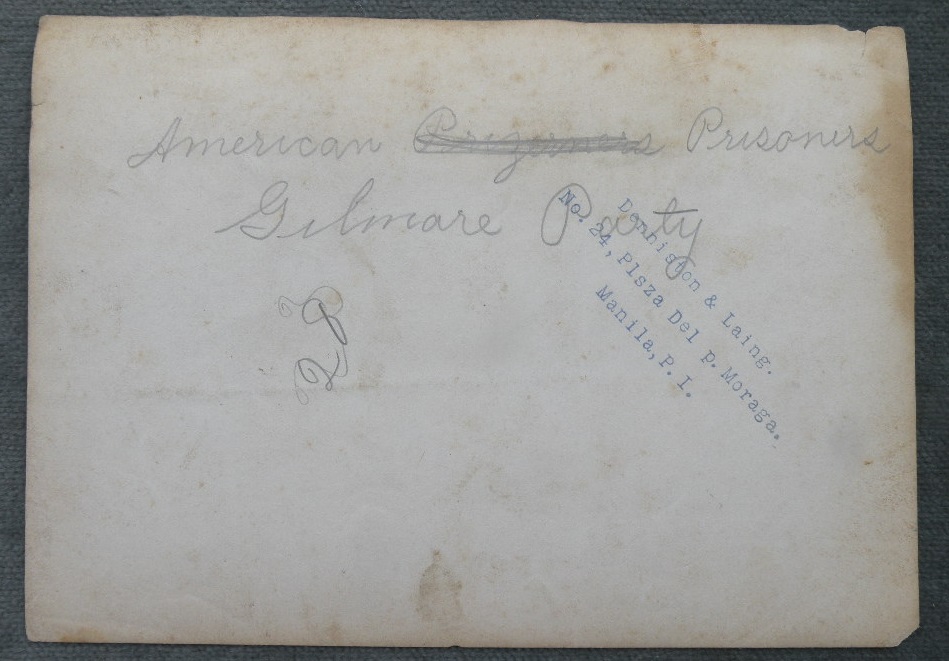 American Prizoners Prisoners
Gilmare Party
Denniston & Laing.
No. 24, Plsza Del p. Moraga.
Manila, P. I.